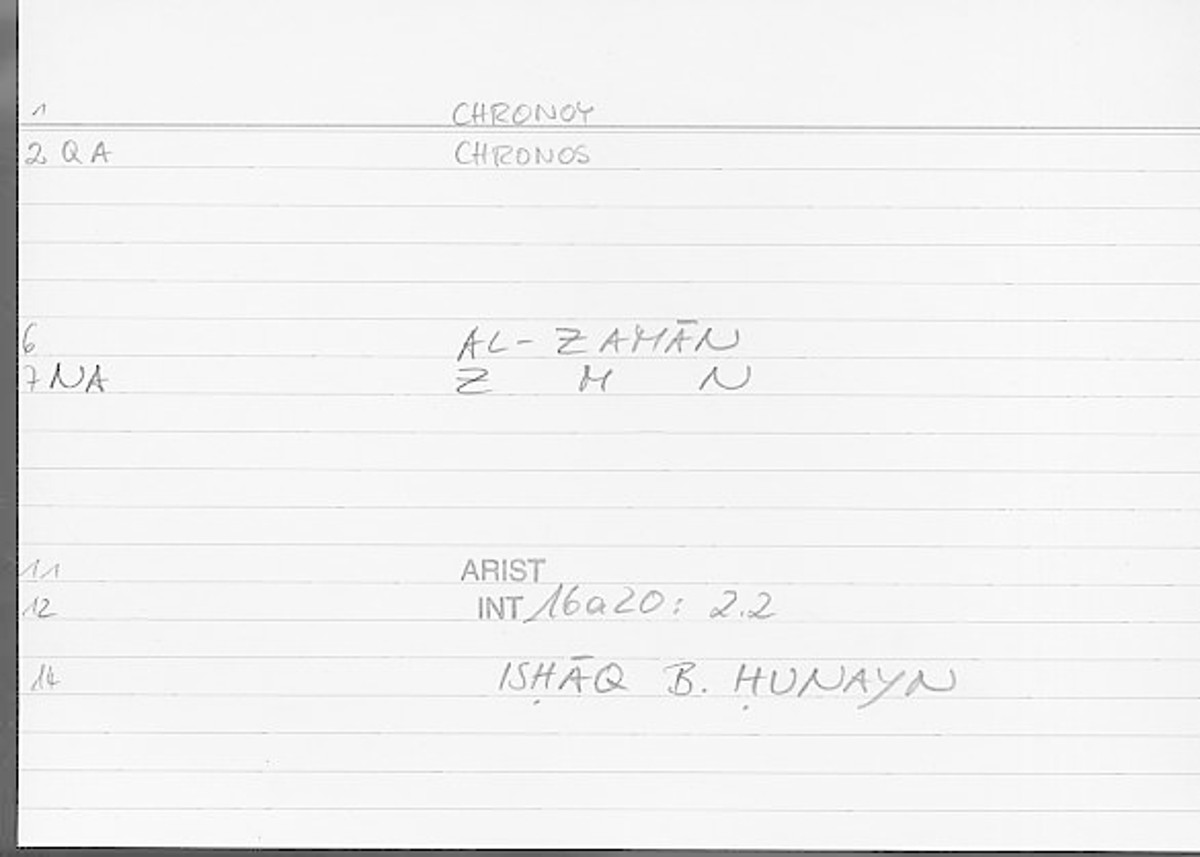 1 CHRONOY
2 QA CHRONOS
6 AL-ZAMĀN
7 NA Z M N
11 ARIST
12 INT 16a20: 2.2
14 ISḤĀQ B. ḤUNAYN